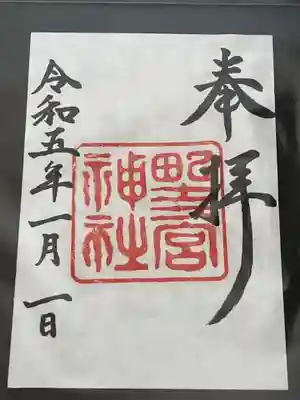 奉拝
野宮
神社
令和五年一月一日